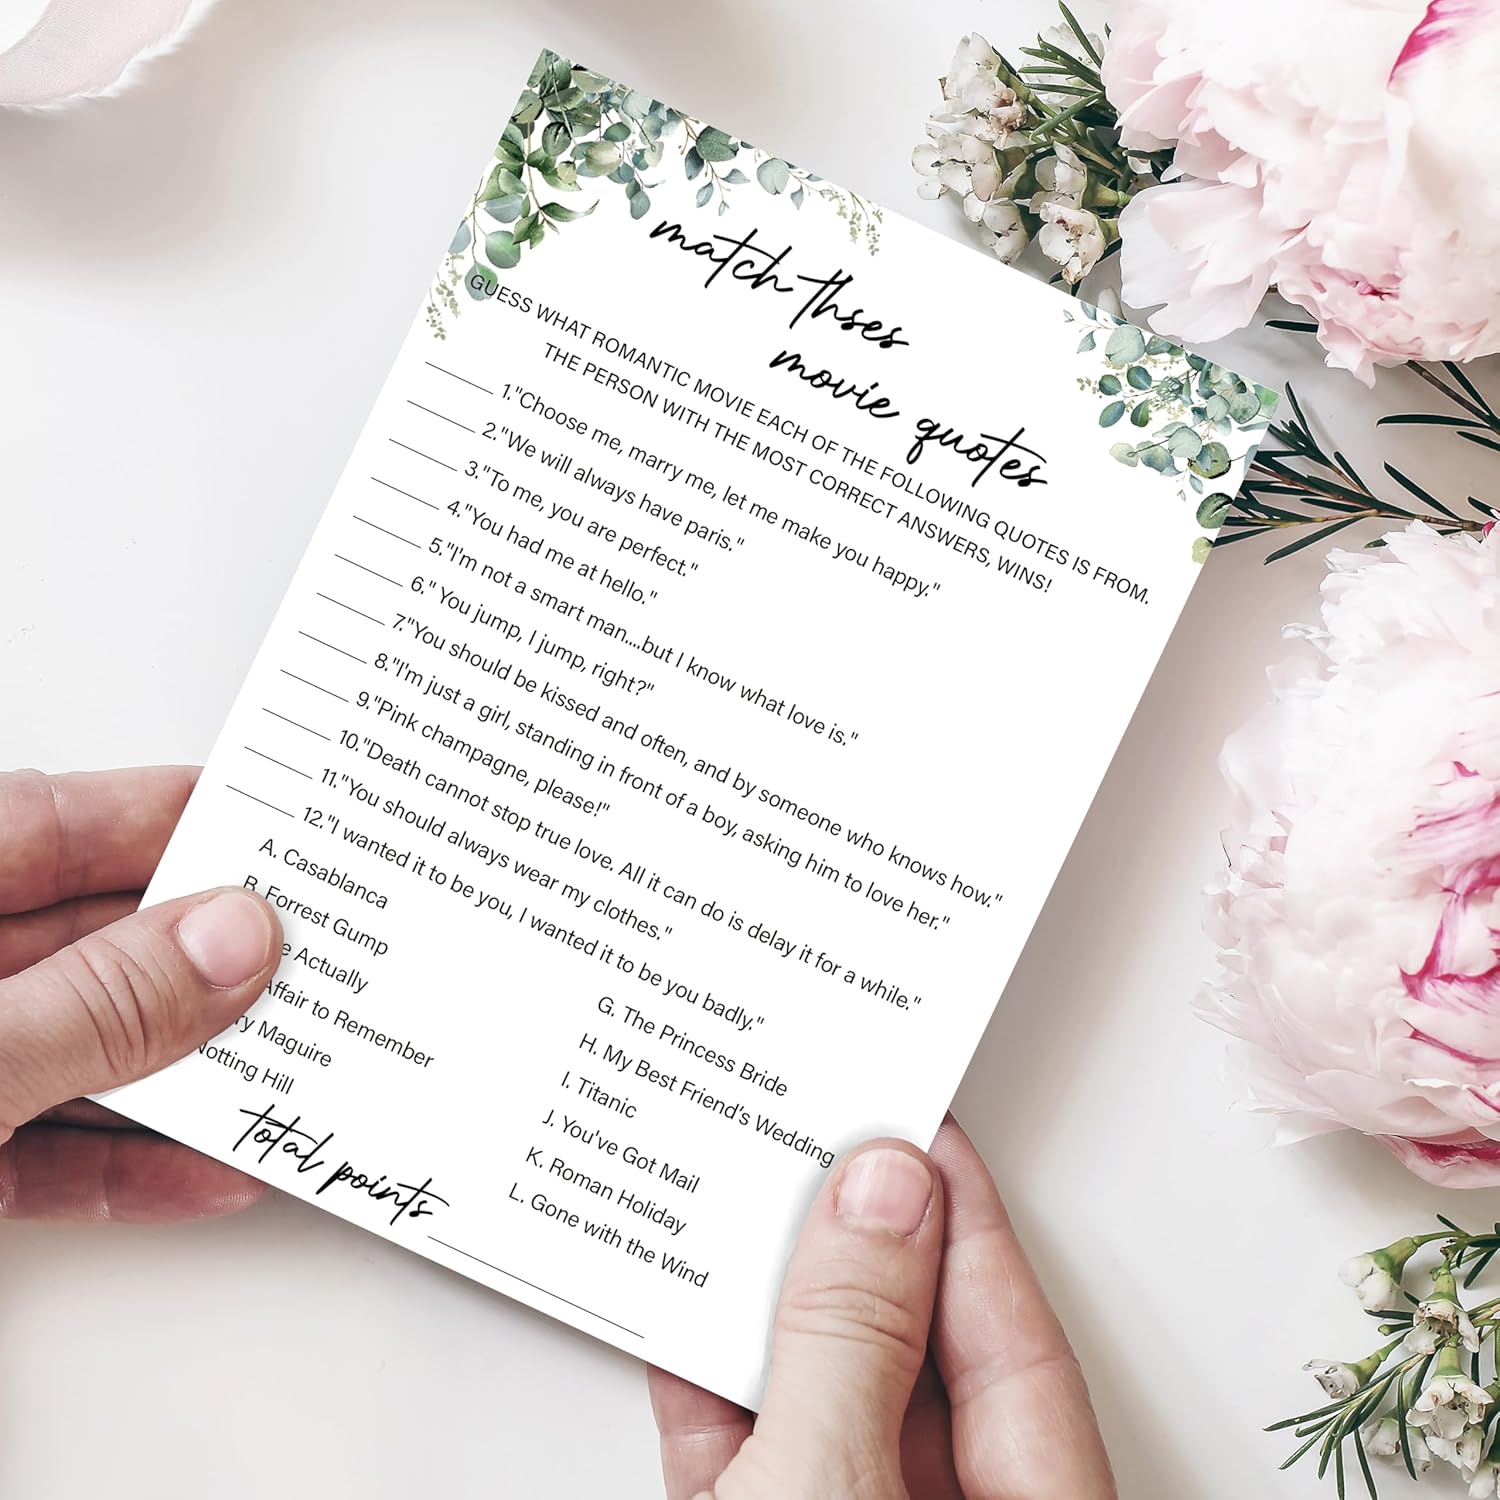 match thses
movie quotes
GUESS WHAT ROMANTIC MOVIE EACH OF THE FOLLOWING QUOTES IS FROM.
THE PERSON WITH THE MOST CORRECT ANSWERS, WINS!
1."Choose me, marry me, let me make you happy."
2."We will always have paris."
3."To me, you are perfect."
4."You had me at hello."
5."I'm not a smart man...but I know what love is."
6." You jump, I jump, right?"
7."You should be kissed and often, and by someone who knows how."
8."I'm just a girl, standing in front of a boy, asking him to love her."
9."Pink champagne, please!"
10."Death cannot stop true love. All it can do is delay it for a while."
11."You should always wear my clothes."
12."I wanted it to be you, I wanted it to be you badly."
A. Casablanca
B. Forrest Gump
e Actually
Affair to Remember
ry Maguire
Notting Hill
G. The Princess Bride
H. My Best Friend's Wedding
I. Titanic
J. You've Got Mail
K. Roman Holiday
L. Gone with the Wind
total points